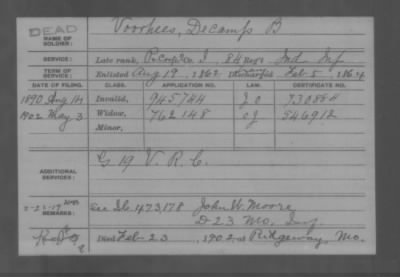 DEAD
NAME OF SOLDIER: Voorhees, Decamps B
SERVICE: Late rank, Pr. Co. I, 84 Reg't Ind Inf
TERM OF SERVICE: Enlisted Aug 19, 1862 Discharged Feb 5, 1864
DATE OF FILING. CLASS. APPLICATION NO. LAW. CERTIFICATE NO.
1890 Aug Invalid, 945744 730884
1902 May 3 Widow, 762148 546912
Minor,
ADDITIONAL SERVICES: G 19 V. R. C.
REMARKS: See 473,178 John W. Moore
D-23 Mo. Inf
Died Feb 23, 1902, at Ridgeway, Mo.